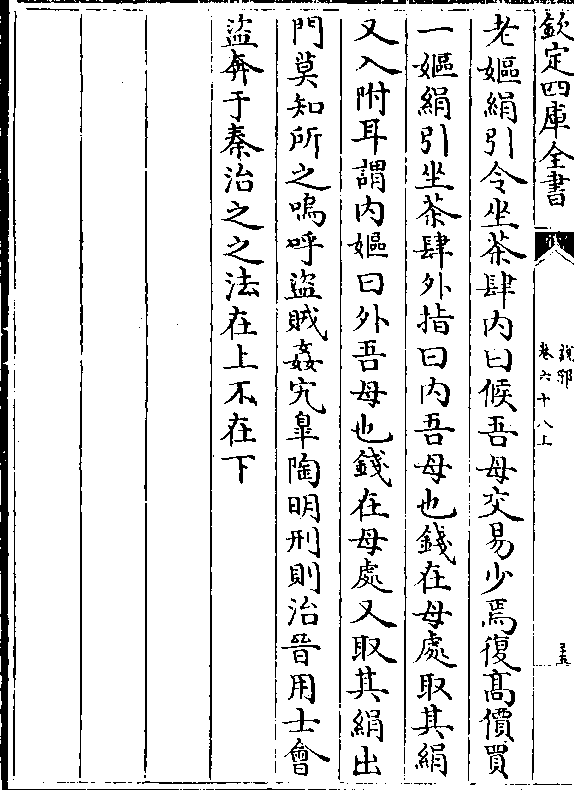 欽定四庫全書
說郛
卷六十八上
三五
老嫗絹引令坐茶肆内曰候吾母交易少焉復髙價買
一嫗絹引坐茶肆外指曰内吾母也錢在母處取其絹
又入附耳謂内嫗曰外吾母也錢在母處又取其絹出
門莫知所之嗚呼盜賊姦宄臯陶明刑則治晉用士會
盜奔于秦治之之法在上不在下